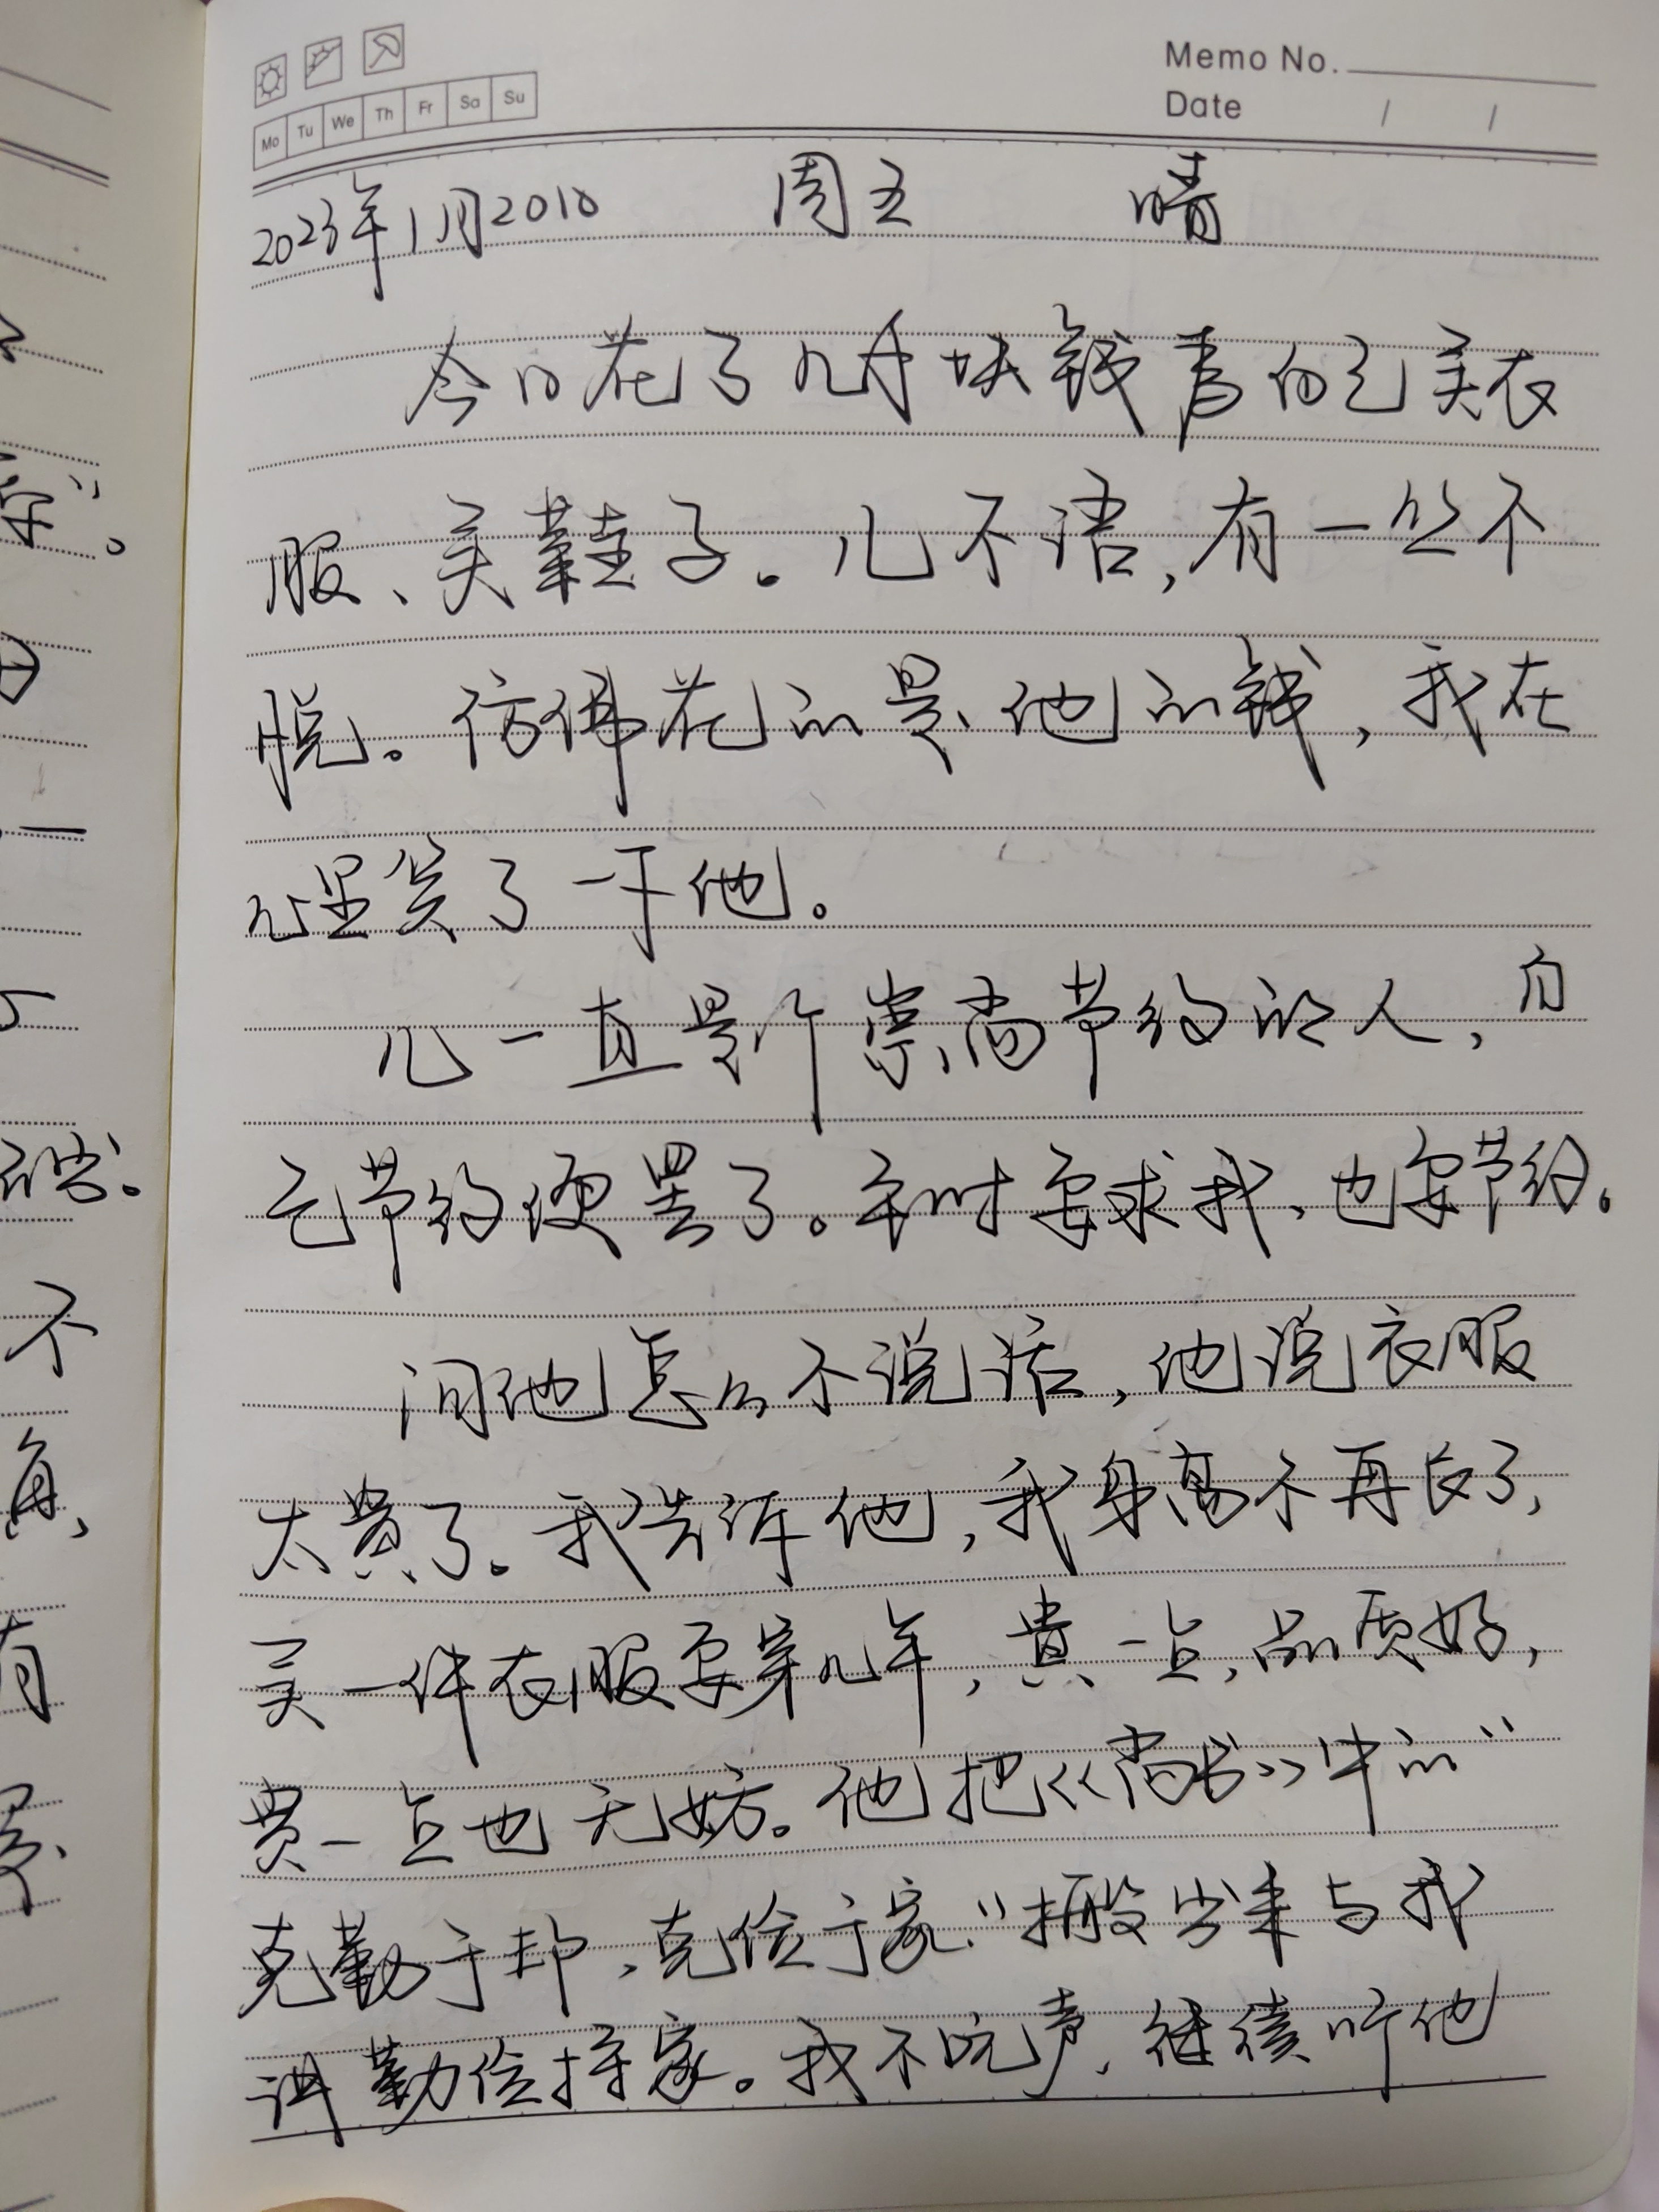 Memo No.
Date / /
Mo Tu We Th Fr Sa Su
2023年1月20日 周五 晴
今日花了几千块钱青自己买衣
服、买鞋子。儿不语,有一丝不
悦。仿佛花的是他的钱,我在
心里笑了一下他。
儿一直是个崇尚节约的人,自
己节约便罢了。平时要求我、也要节约。
问他怎么不说话,他说衣服
太贵了。我告诉他,我身高不再长了,
买一件衣服要穿几年,贵一点,品质好,
贵一点也无妨。他把《尚书》中的“
克勤于邦、克俭于家”搬出来与我
讲勤俭持家。我不吭声,继续听他